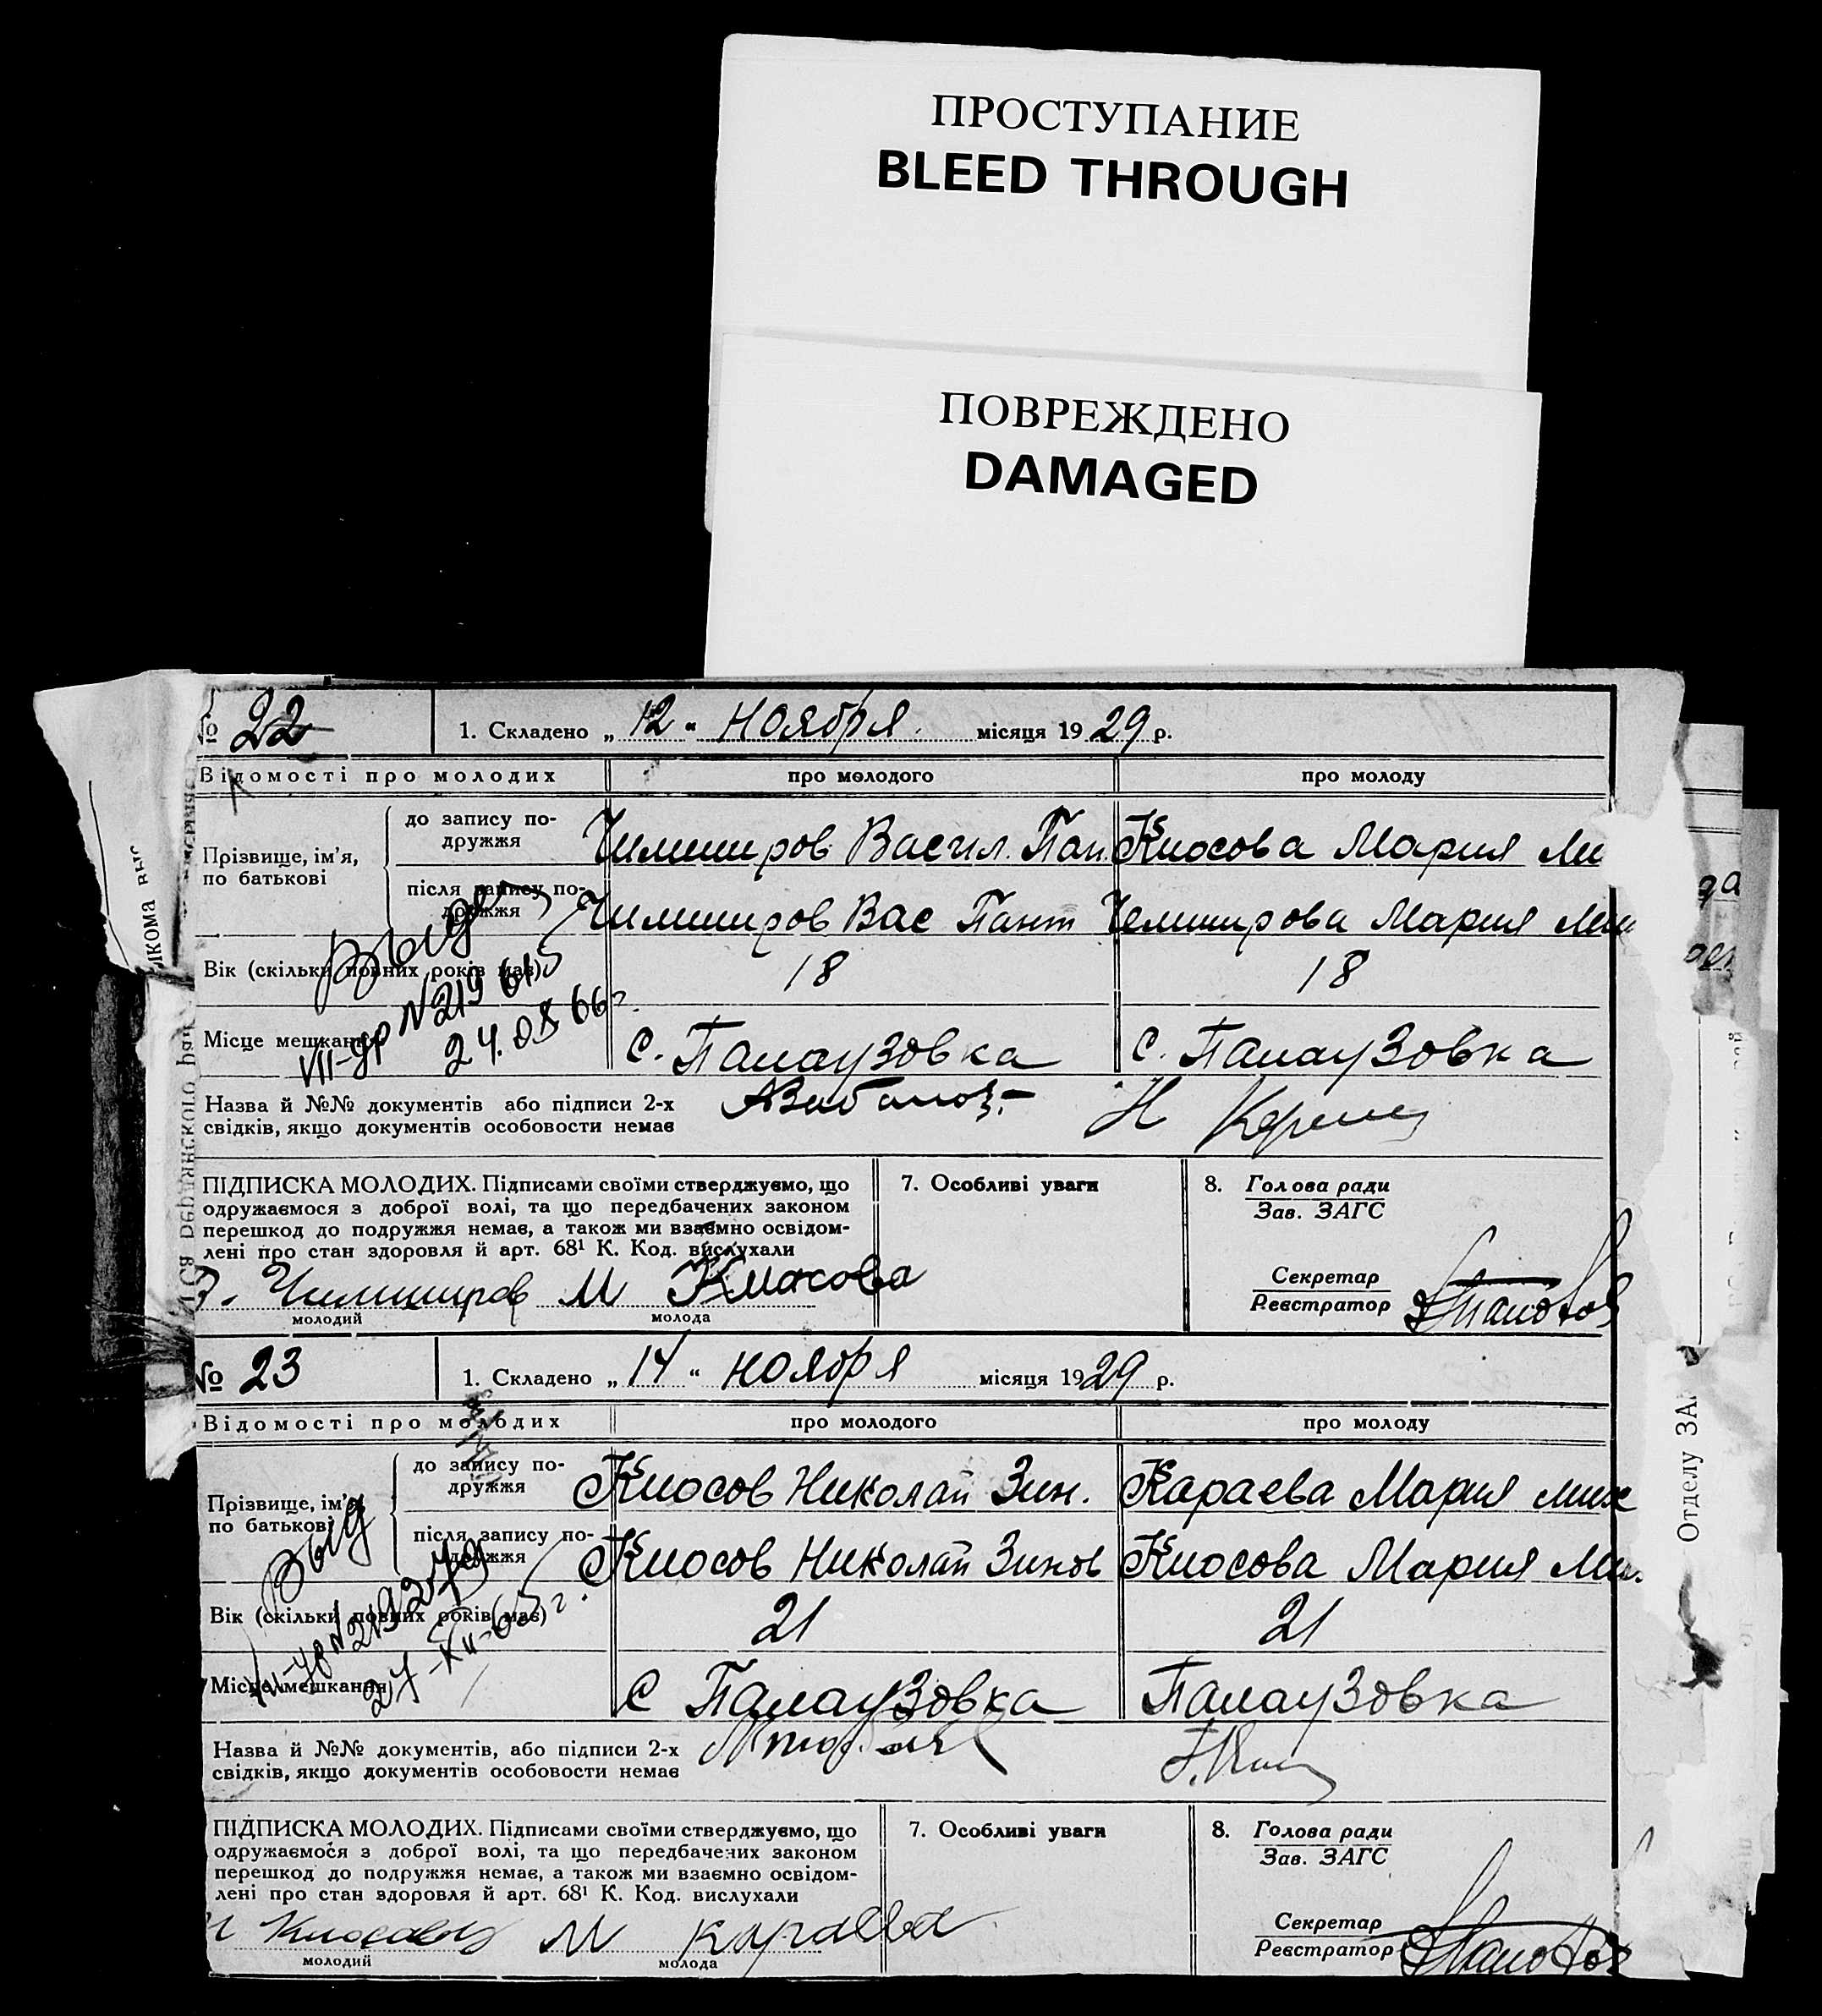 ПРОСТУПАНИЕ
BLEED THROUGH
ПОВРЕЖДЕНО
DAMAGED
№ 22
1. Складено „ 12 “ ноября місяця 1929 р.
Відомості про молодих
про молодого
про молоду
Прізвище, ім’я,
по батькові
до запису по-
дружжя
Чимширов Васил. Пан.
Киосова Мария Ми
після запису по-
дружжя
Чимширов Вас Пант
Чемширова Мария Мих
Выд
VII-ур N 219615
24.08 66 г.
Вік (скільки повних років має)
18
18
Місце мешкання
с. Палаузовка
с. Палаузовка
Назва й №№ документів або підписи 2-х
свідків, якщо документів особовости немає
ПІДПИСКА МОЛОДИХ. Підписами своїми стверджуємо, що
одружаємося з доброї волі, та що передбачених законом
перешкод до подружжя немає, а також ми взаємно освідом-
лені про стан здоровля й арт. 68¹ К. Код. вислухали
Чимширов М Киосова
молодий
молода
7. Особливі уваги
8. Голова ради
Зав. ЗАГС
Секретар
Реєстратор
№ 23
1. Складено „ 14 “ ноября місяця 1929 р.
Відомості про молодих
про молодого
про молоду
Прізвище, ім’я,
по батькові
до запису по-
дружжя
Киосов Николай Зин.
Караева Мария Мих
після запису по-
дружжя
Киосов Николай Зинов
Киосова Мария Ми.
Выд
27-XII-65 г.
Вік (скільки повних років має)
21
21
Місце мешкання
с Палаузовка
Палаузовка
Назва й №№ документів, або підписи 2-х
свідків, якщо документів особовости немає
ПІДПИСКА МОЛОДИХ. Підписами своїми стверджуємо, що
одружаємося з доброї волі, та що передбачених законом
перешкод до подружжя немає, а також ми взаємно освідом-
лені про стан здоровля й арт. 68¹ К. Код. вислухали
Киосов М Караева
молодий
молода
7. Особливі уваги
8. Голова ради
Зав. ЗАГС
Секретар
Реєстратор
Отделу ЗА